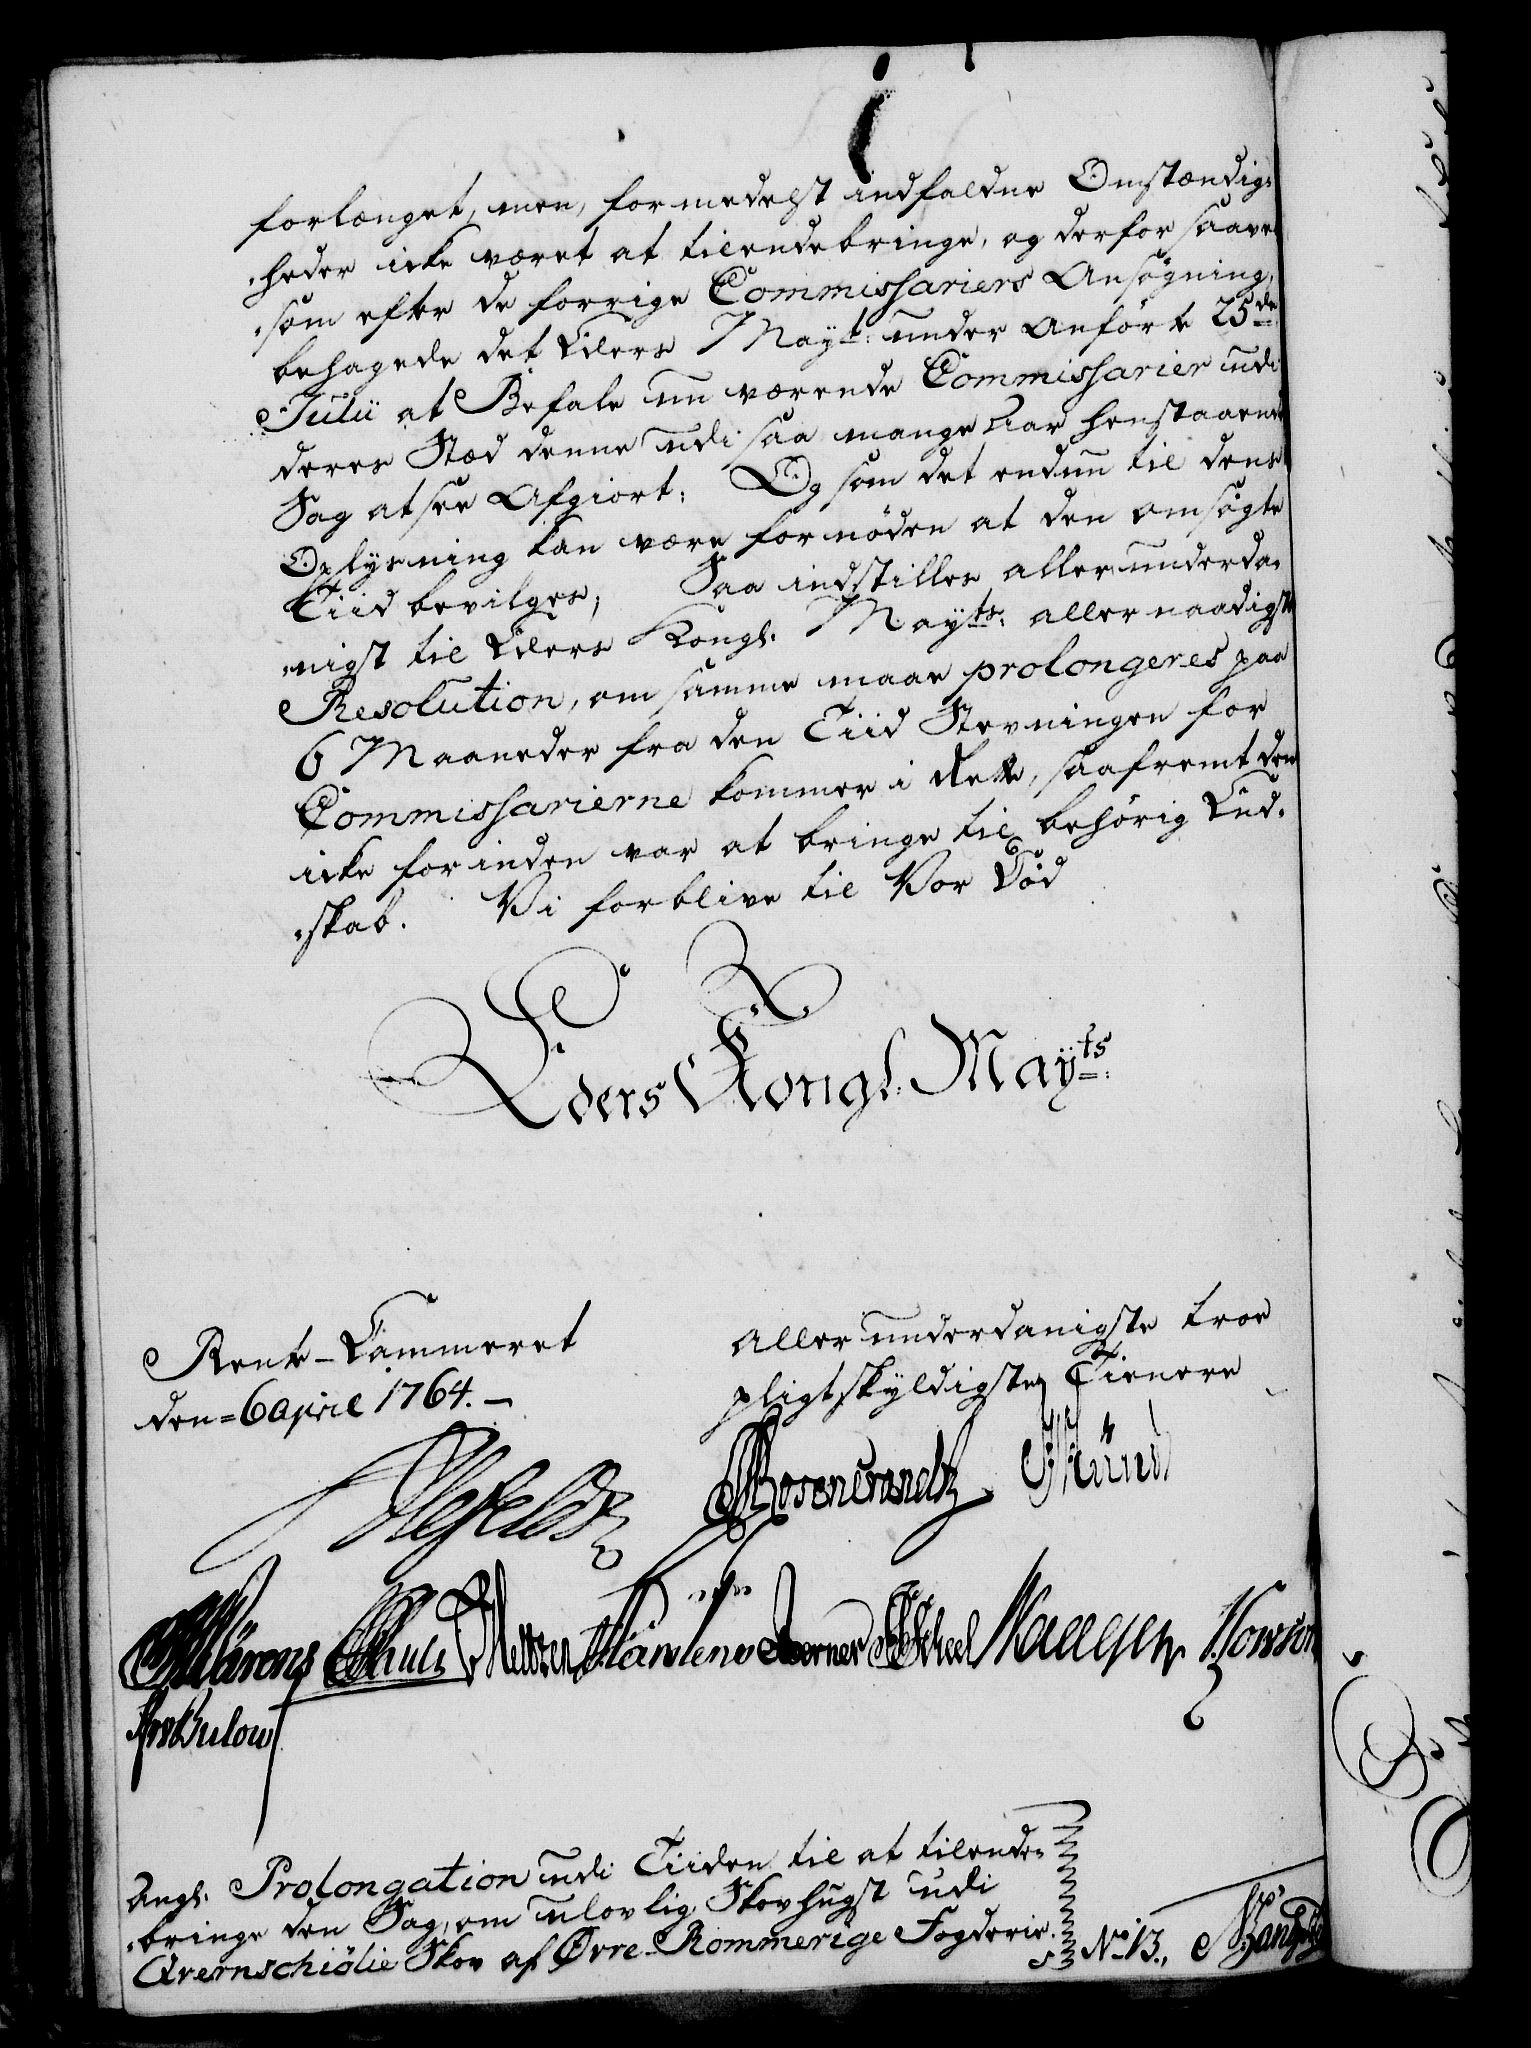 forlænget, men, formedelst indfaldne Omstændig-
-heder icke været at tilendebringe, og derfor saavel
-som efter de forrige Commissariers Ansøgning,
behagede det Eders Mayt: under Anførte 25de
Julii at Befale nu værende Commissarier udi
deres Stæd denne udi saa mange Aar henstaaende
Sag at see Afgiort; Og som det endnu til dens
Oplysning kan være fornöden at den omsögte
Tiid bevilges; Saa indstilles allerunderda-
-nigst til Eders Kongl. Mayts: allernaadigste
Resolution, om samme maae prolongeres paa
6 Maaneder fra den Tiid Stevningen for
Commissarierne kommer i Rette, saafremt den
icke forinden var at bringe til behörig End-
-skab. Vi forblive til Vor Död
Eders Kongl. Mayts
Rente-Cammeret
den = 6 April 1764. —
allerunderdanigste troe
pligtskyldigste Tienere
Rosencrandtz
Scheel
Bulow
Angl. Prolongation udi Tiiden til at tilende-
-bringe den Sag, om ulovlig Skovhugst udi
Qvernschiölie Skov af Øvre-Rommerige Fogderie.
No 13.